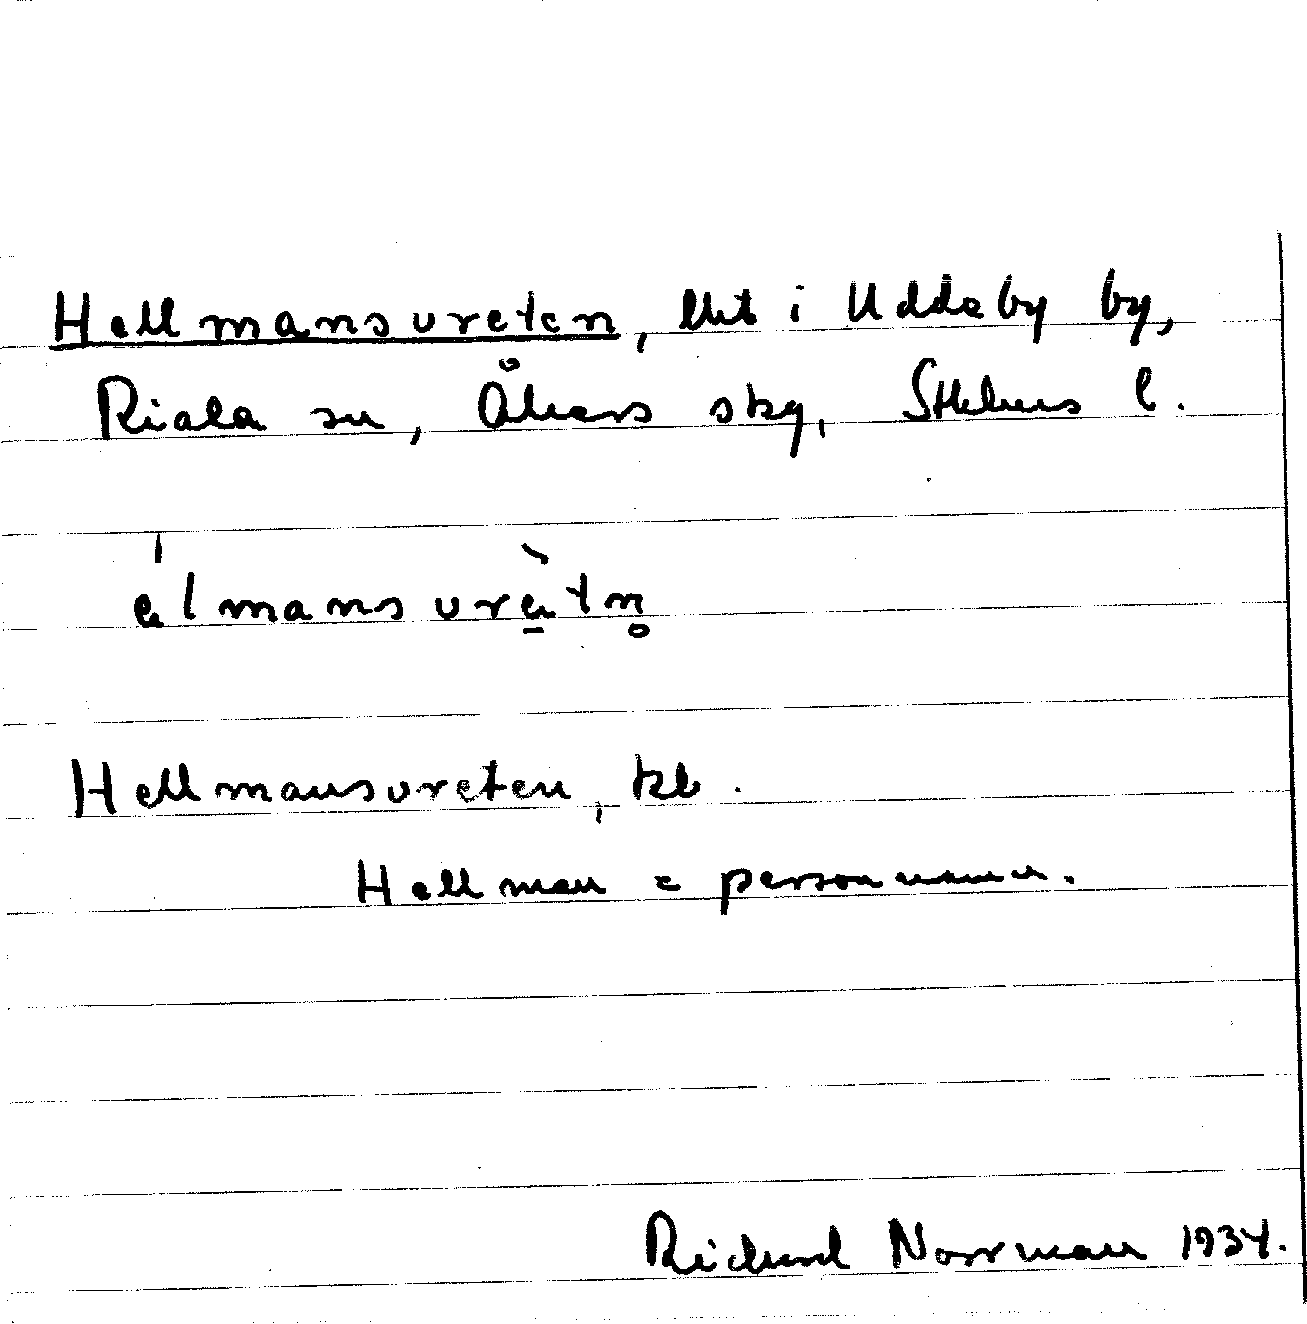 Hellmansvreten, lht i Uddeby by,
Riala sn, Åkers skg, Sthlms l.
élmansvrè̱tn̥
Hellmansvreten, kb.
Hellman = personnamn.
Richard Norrman 1934.